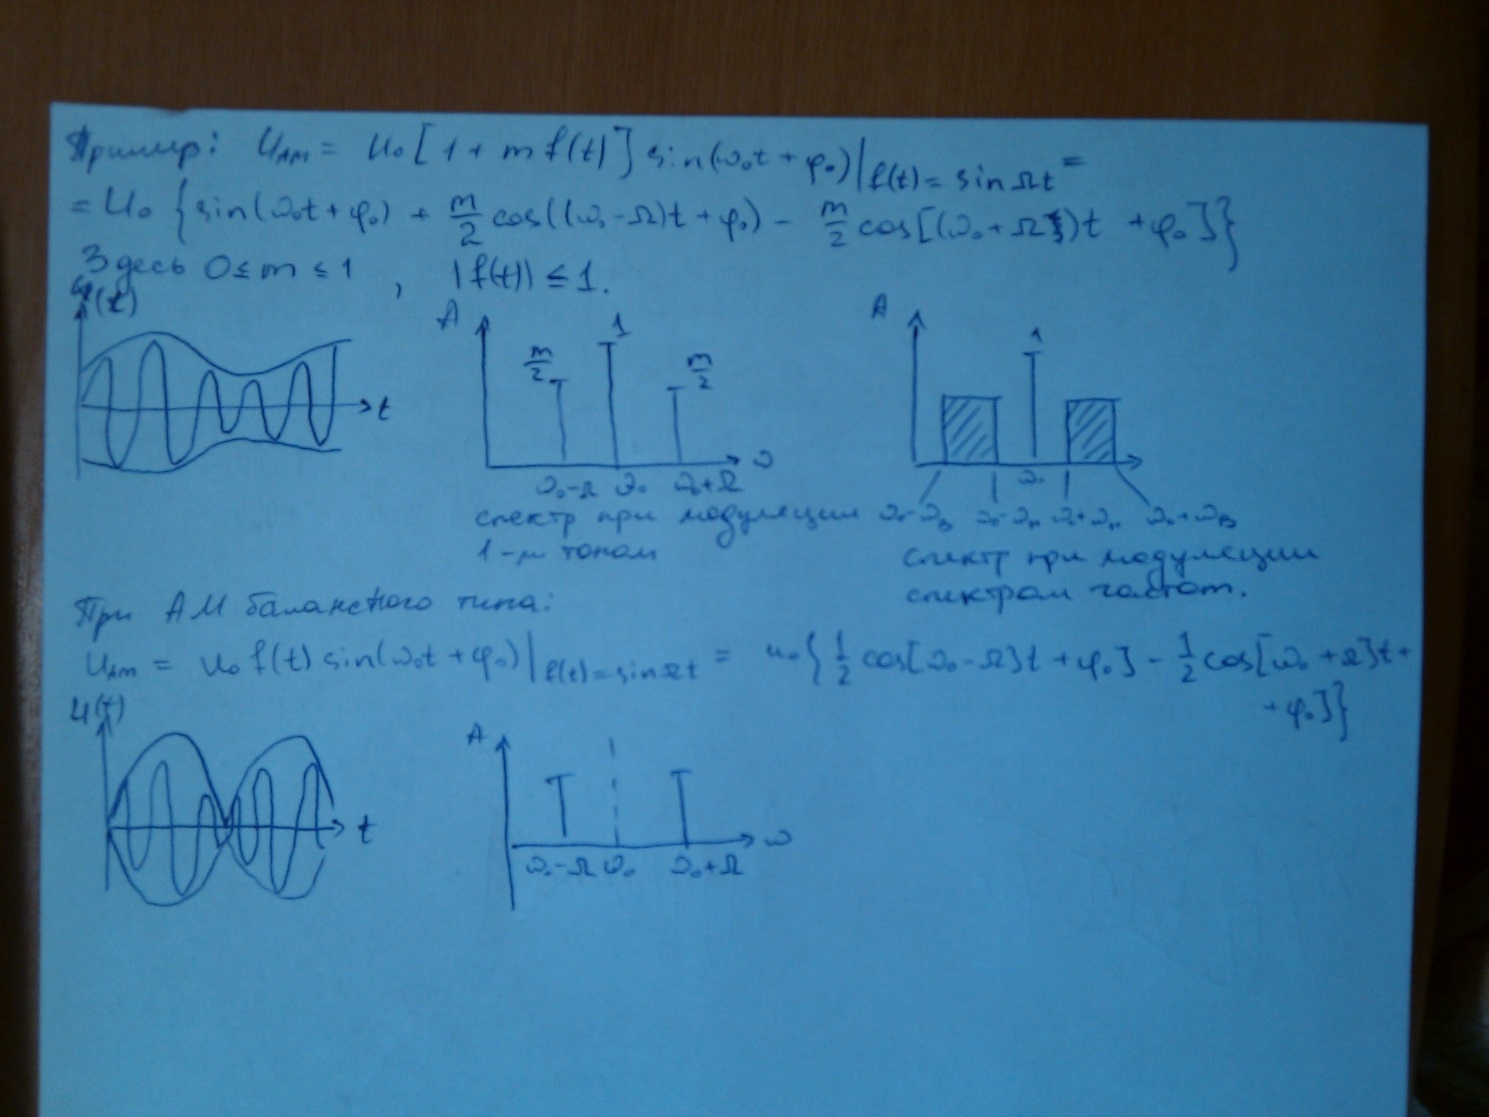 Пример: U_АМ = U₀[1 + m f(t)] sin(ω₀t + φ₀)|f(t) = sin Ωt =
= U₀ {sin(ω₀t + φ₀) + m/2 cos((ω₀ - Ω)t + φ₀) - m/2 cos[(ω₀ + Ω)t + φ₀]}
Здесь 0 ≤ m ≤ 1 , |f(t)| ≤ 1.
U(t)
t
A
m/2
1
m/2
ω
ω₀-Ω ω₀ ω₀+Ω
спектр при модуляции
1-м тоном
A
1
ω₀
ω₀-ω_в ω₀-ω_н ω₀+ω_н ω₀+ω_в
спектр при модуляции
спектром частот.
При АМ балансного типа:
U_АМ = U₀ f(t) sin(ω₀t + φ₀)|f(t) = sin Ωt = U₀{1/2 cos[ω₀ - Ω]t + φ₀] - 1/2 cos[ω₀ + Ω]t +
+ φ₀]}
U(t)
t
A
ω
ω₀-Ω ω₀ ω₀+Ω